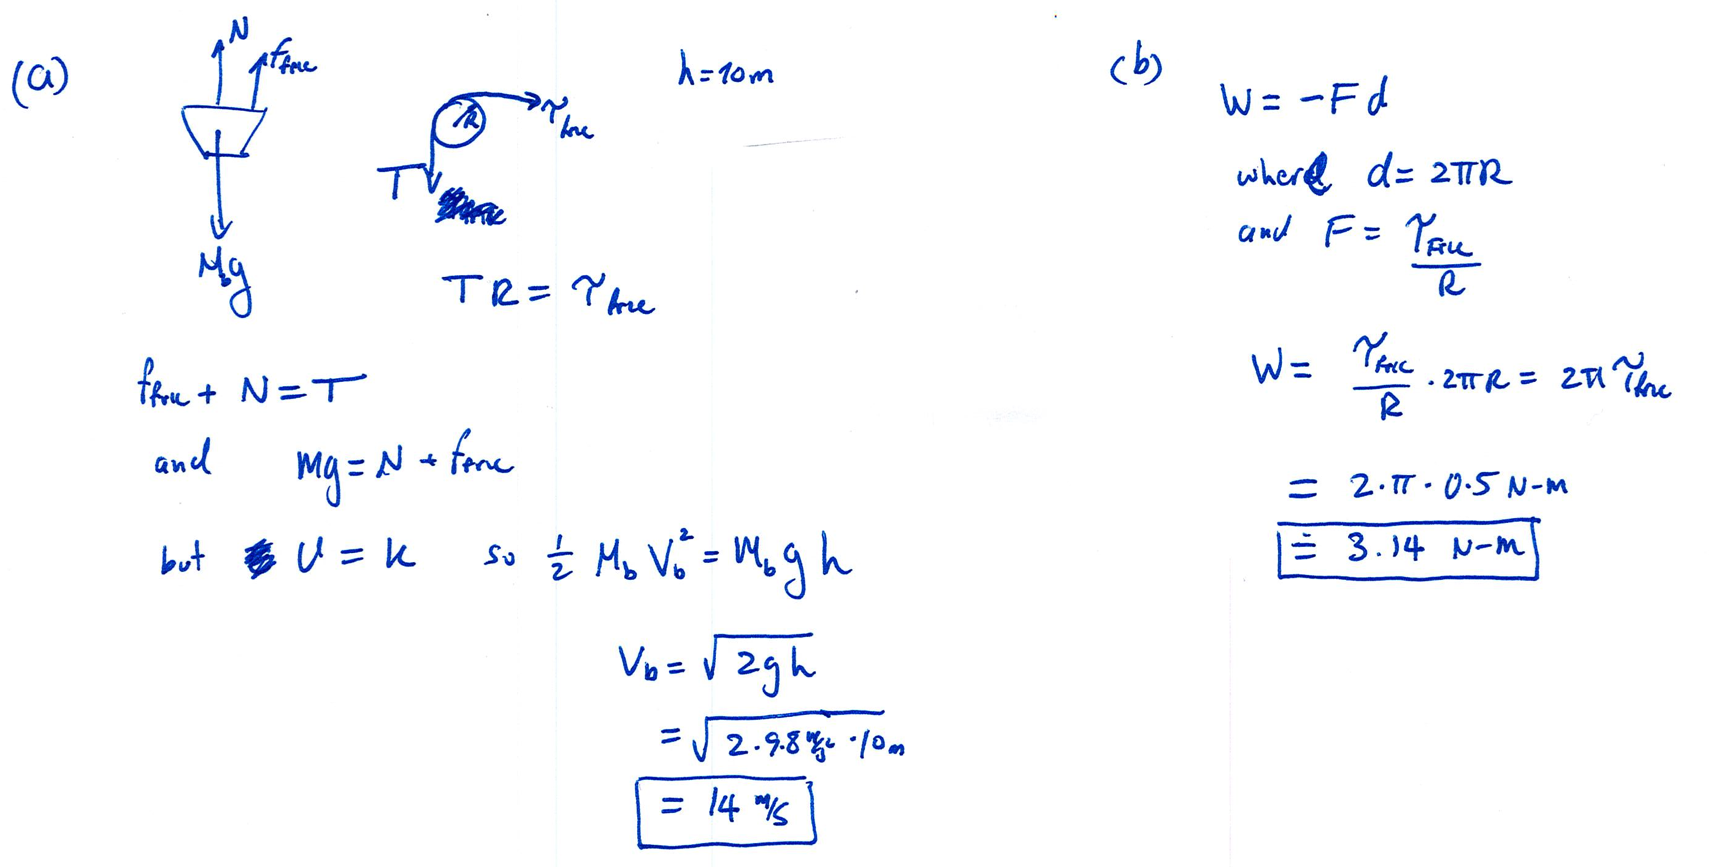 (a)
N
f_fric
M_b g
R
τ_fric
T
h = 10 m
TR = τ_fric
f_fric + N = T
and Mg = N + f_fric
but U = K so 1/2 M_b V_b^2 = M_b g h
V_b = √(2gh)
= √(2 · 9.8 m/s² · 10 m)
= 14 m/s
(b)
W = -Fd
where d = 2πR
and F = τ_fric / R
W = τ_fric / R · 2πR = 2π τ_fric
= 2 · π · 0.5 N-m
= 3.14 N-m